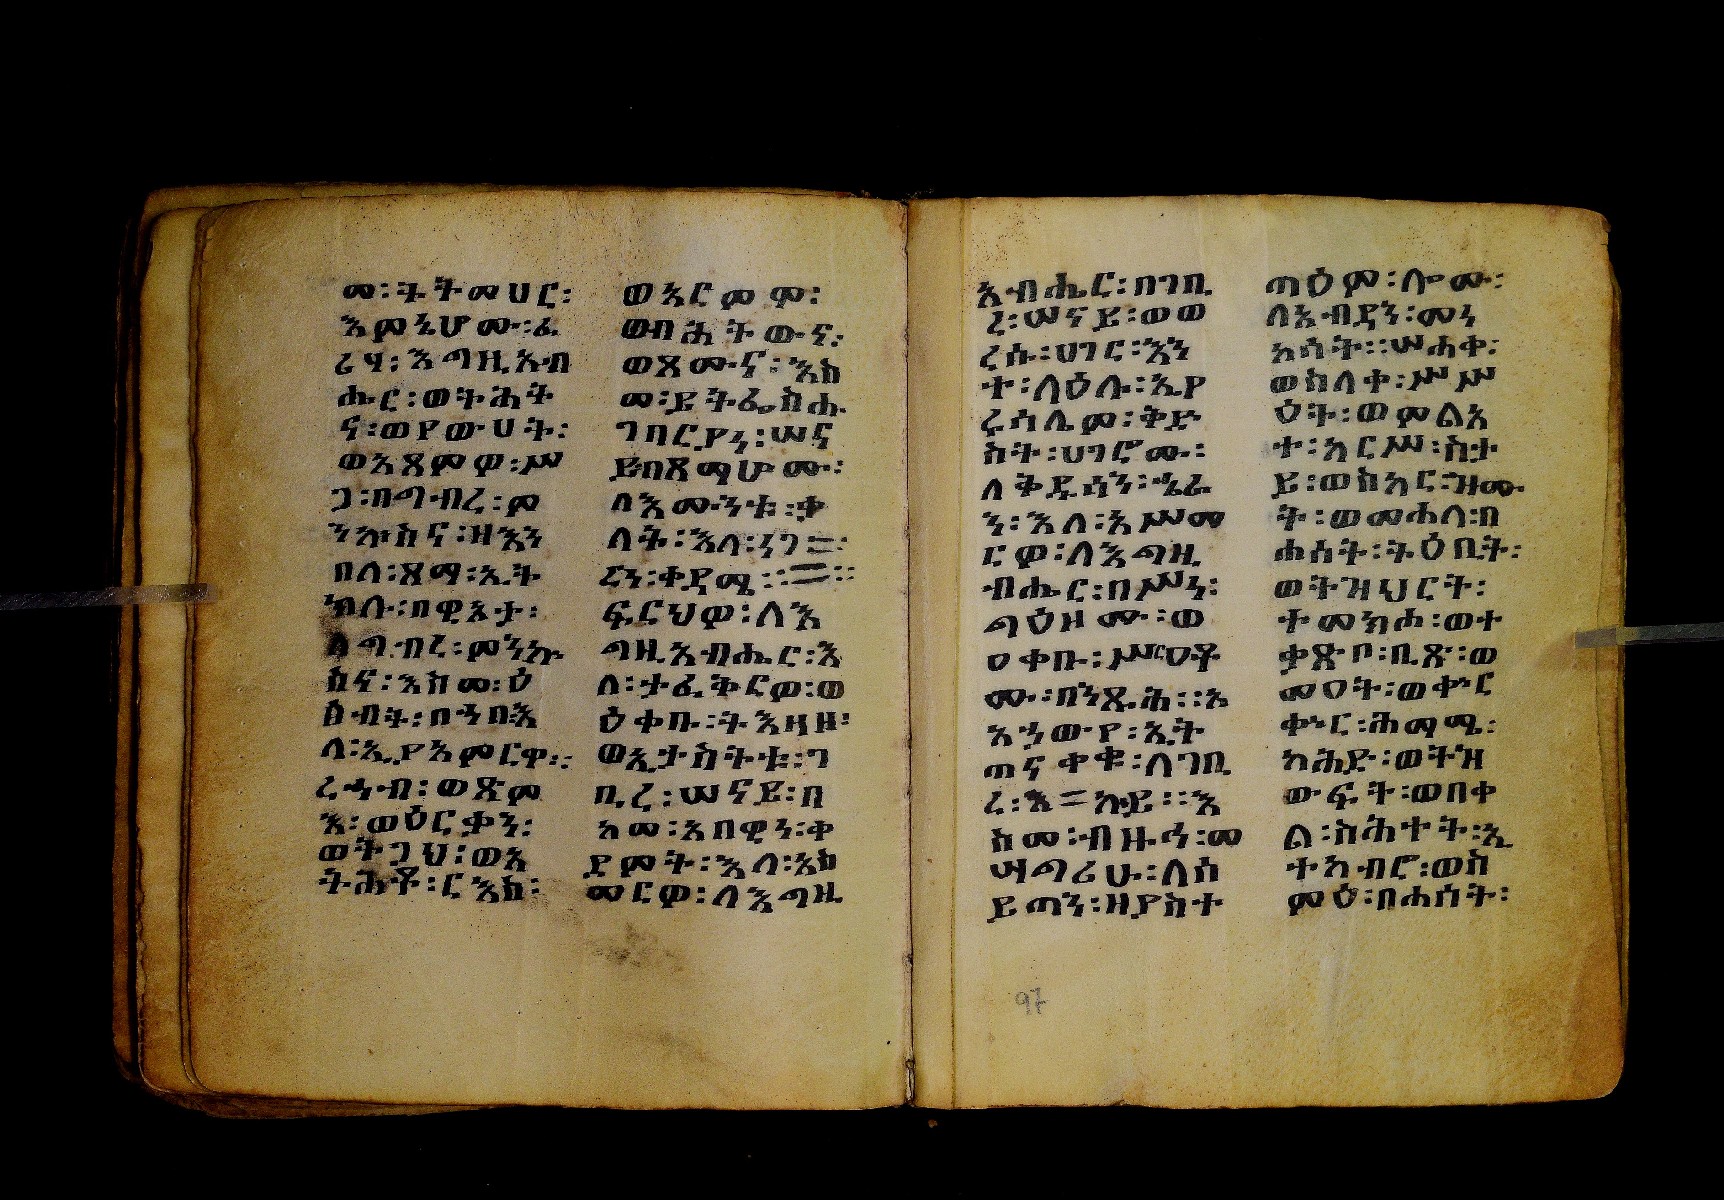 መ፡ትትመሀር፡
እምኔሆሙ፡ፈ
ሪሃ፡እግዚአብ
ሔር፡ወትሕት
ና፡ወየውሀት፡
ወአጽምዖ፡ሥ
ጋ፡በግብረ፡ም
ንኵስና፡ዘእን
በለ፡ጾማ፡ኢት
ክሉ፡በዊኦታ፡
ለግብረ፡ምንኵ
ስና፡እስመ፡ዕ
ፁብት፡በኀበ፡እ
ለ፡ኢያአምርዋ።
ረኃብ፡ወጽም
እ፡ወዕርቃን፡
ወትጋህ፡ወአ
ትሕቶ፡ርእስ፡
ወአርምሞ፡
ወብሕትውና፡
ወጾሙና፡እስ
መ፡ይትፌሥሑ
ገበርያነ፡ሠና
ይ፡በጾማሆሙ፡
ለእሙንቱ፡ቀ
ለት፡እለ፡ነገ
ረን፡ቀዳሚ።
ፍርህዎ፡ለእ
ግዚአብሔር፡እ
ለ፡ታፈቅርዎ፡ወ
ዕቀቡ፡ትእዛዘ፡
ወኢታስትቱ፡ገ
ቢረ፡ሠናይ፡በ
አመ፡አበዊነ፡ቀ
ደምት፡እለ፡አስ
መርዎ፡ለእግዚ
አብሔር፡በገቢ
ረ፡ሠናይ፡ወወ
ረሱ፡ሀገር፡እን
ተ፡ላዕሉ፡ኢየ
ሩሳሌም፡ቅድ
ስት፡ሀገሮሙ፡
ለቅዱሳን፡ኄራ
ን፡እለ፡አሥመ
ርዎ፡ለእግዚ
ብሔር፡በሥነ፡
ግዕዘሙ፡ወ
ዐቀቡ፡ሥርዐቶ
ሙ፡በንጹሕ።አ
አኃውየ፡ኢት
ጠናቀቁ፡ለገቢ
ረ፡እኩይ።እ
ስመ፡ብዙኅ፡መ
ሣግሪሁ፡ለሰ
ይጣን፡ዘያስተ
ጣዕም፡ሎሙ፡
ለአብዳን፡መነ
አሳት።ሠሐቀ፡
ወስላቀ፡ሥሥ
ዕት፡ወምልአ
ተ፡አርሥ፡ስታ
ይ፡ወስእር፡ዝሙ
ት፡ወመሐላ፡በ
ሐሰት፡ትዕቢት፡
ወትዝህርት፡
ተመክሐ፡ወተ
ቃጽቦ፡ቢጽ፡ወ
መዐት፡ወቀኍር
ቀኍር፡ሕማሜ፡
ክሕድ፡ወትዝ
ውፍት፡ወበቀ
ል፡ስሕተት፡ኢ
ተአብሮ፡ወስ
ምዕ፡በሐሰት፡
97